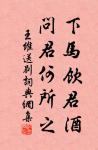 下馬飲君酒
問君何所之
王維送別詞典網集